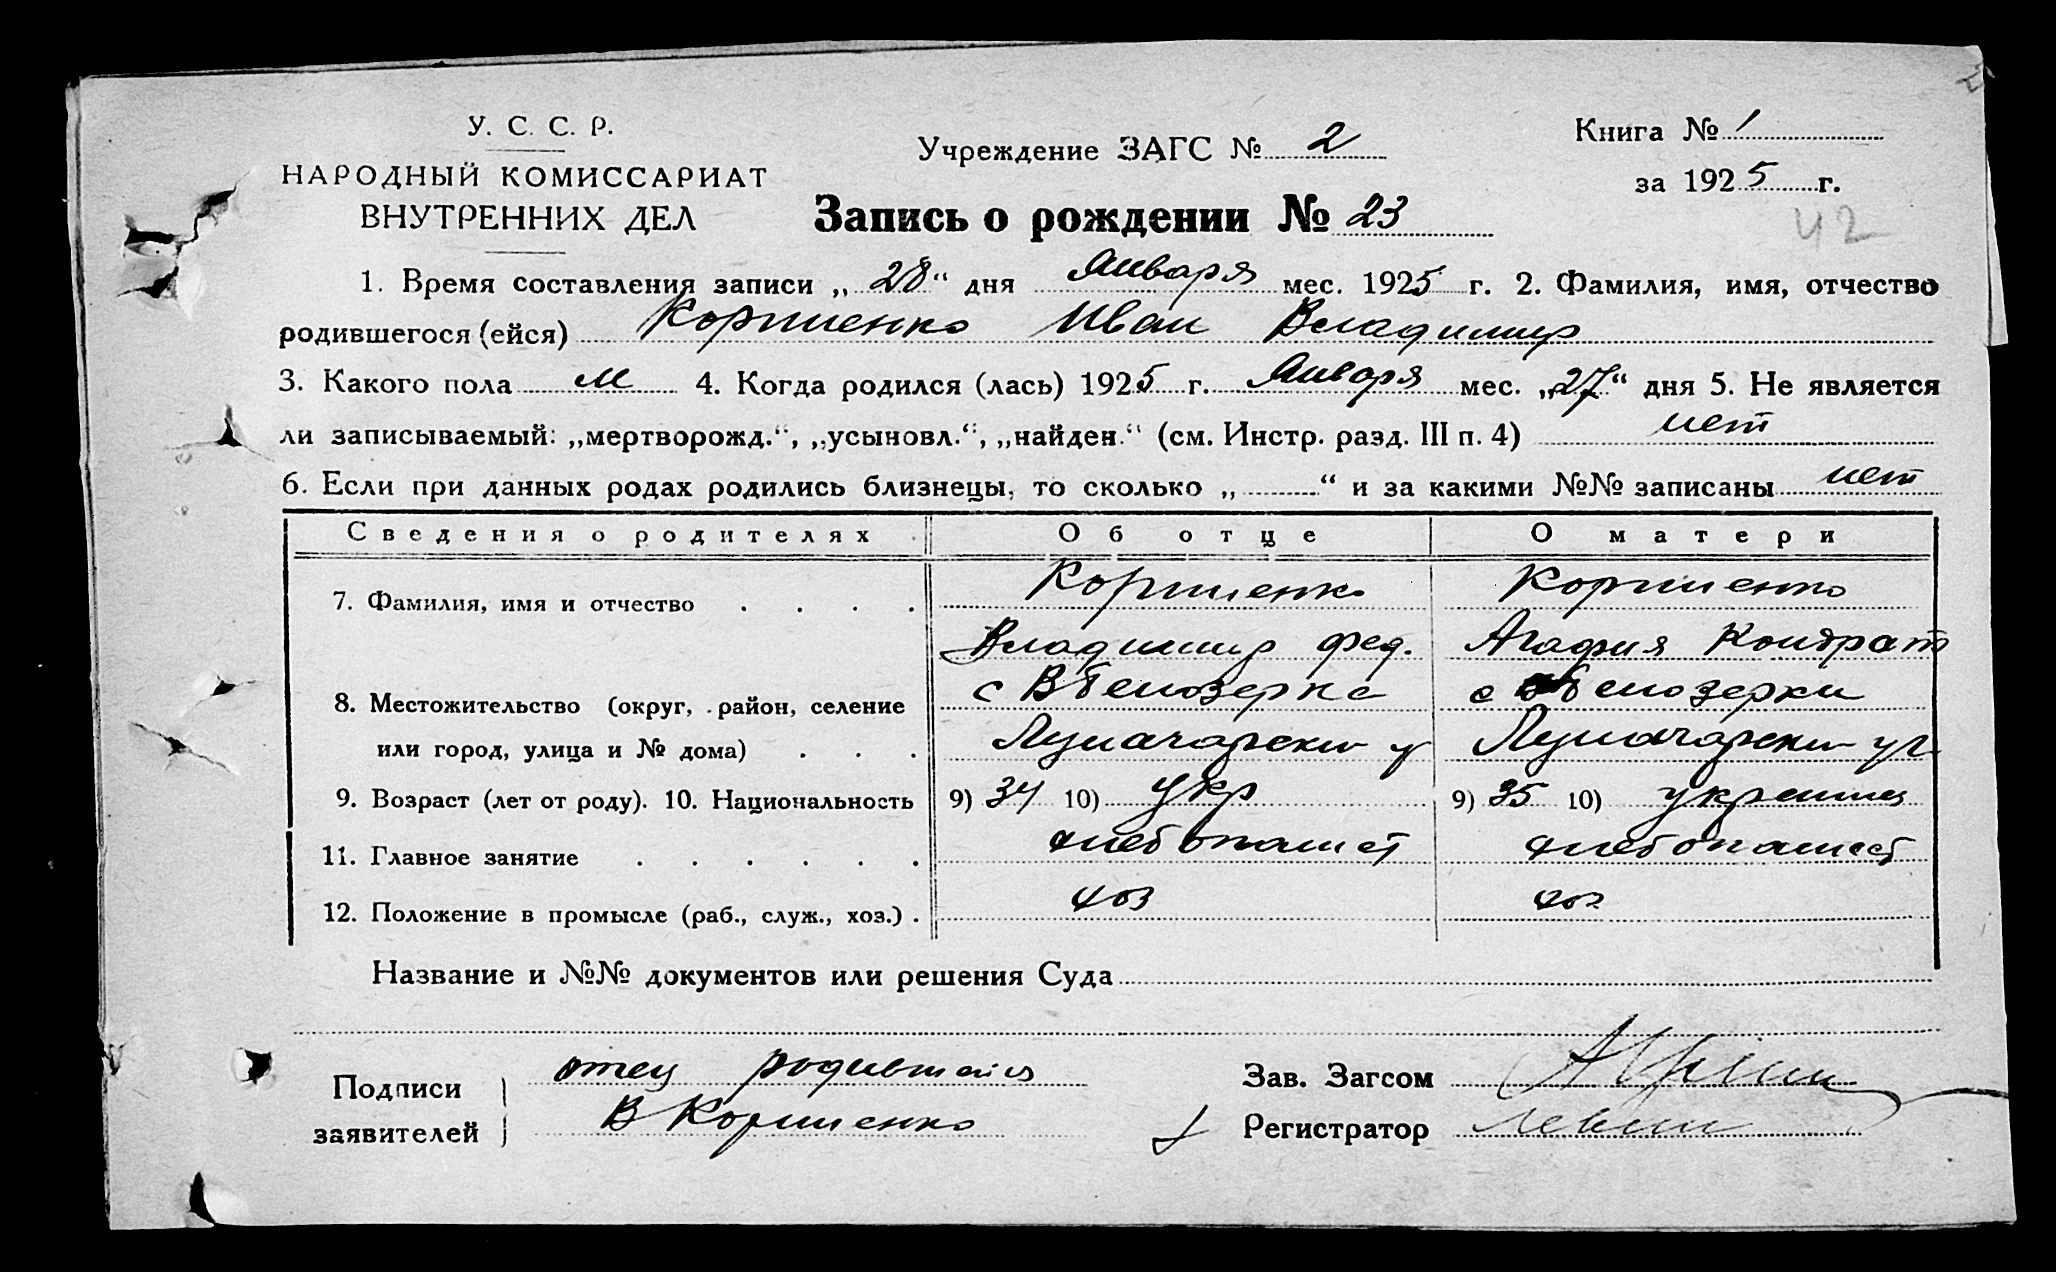 У. С. С. Р.
НАРОДНЫЙ КОМИССАРИАТ
ВНУТРЕННИХ ДЕЛ
Учреждение ЗАГС № 2
Книга № 1
за 1925 г.
Запись о рождении № 23
42
1. Время составления записи „28“ дня Января мес. 1925 г. 2. Фамилия, имя, отчество
родившегося (ейся) Коршиенко Иван Владимир
3. Какого пола м 4. Когда родился (лась) 1925 г. Января мес. „27“ дня 5. Не является
ли записываемый: „мертворожд.“, „усыновл.“, „найден.“ (см. Инстр. разд. III п. 4) нет
6. Если при данных родах родились близнецы, то сколько „ “ и за какими №№ записаны нет
Сведения о родителях Об отце О матери
7. Фамилия, имя и отчество Коршиенко Коршиенко
Владимир Фед. Агафия Кондрат
8. Местожительство (округ, район, селение с В Белозерка с Белозерки
или город, улица и № дома) Луначарски у Луначарски ул
9. Возраст (лет от роду). 10. Национальность 9) 34 10) укр 9) 35 10)
11. Главное занятие хлебопашест хлебопашест
12. Положение в промысле (раб., служ., хоз.) хоз хоз
Название и №№ документов или решения Суда
Подписи заявителей отец
В Коршиенко
Зав. Загсом
Регистратор Левин